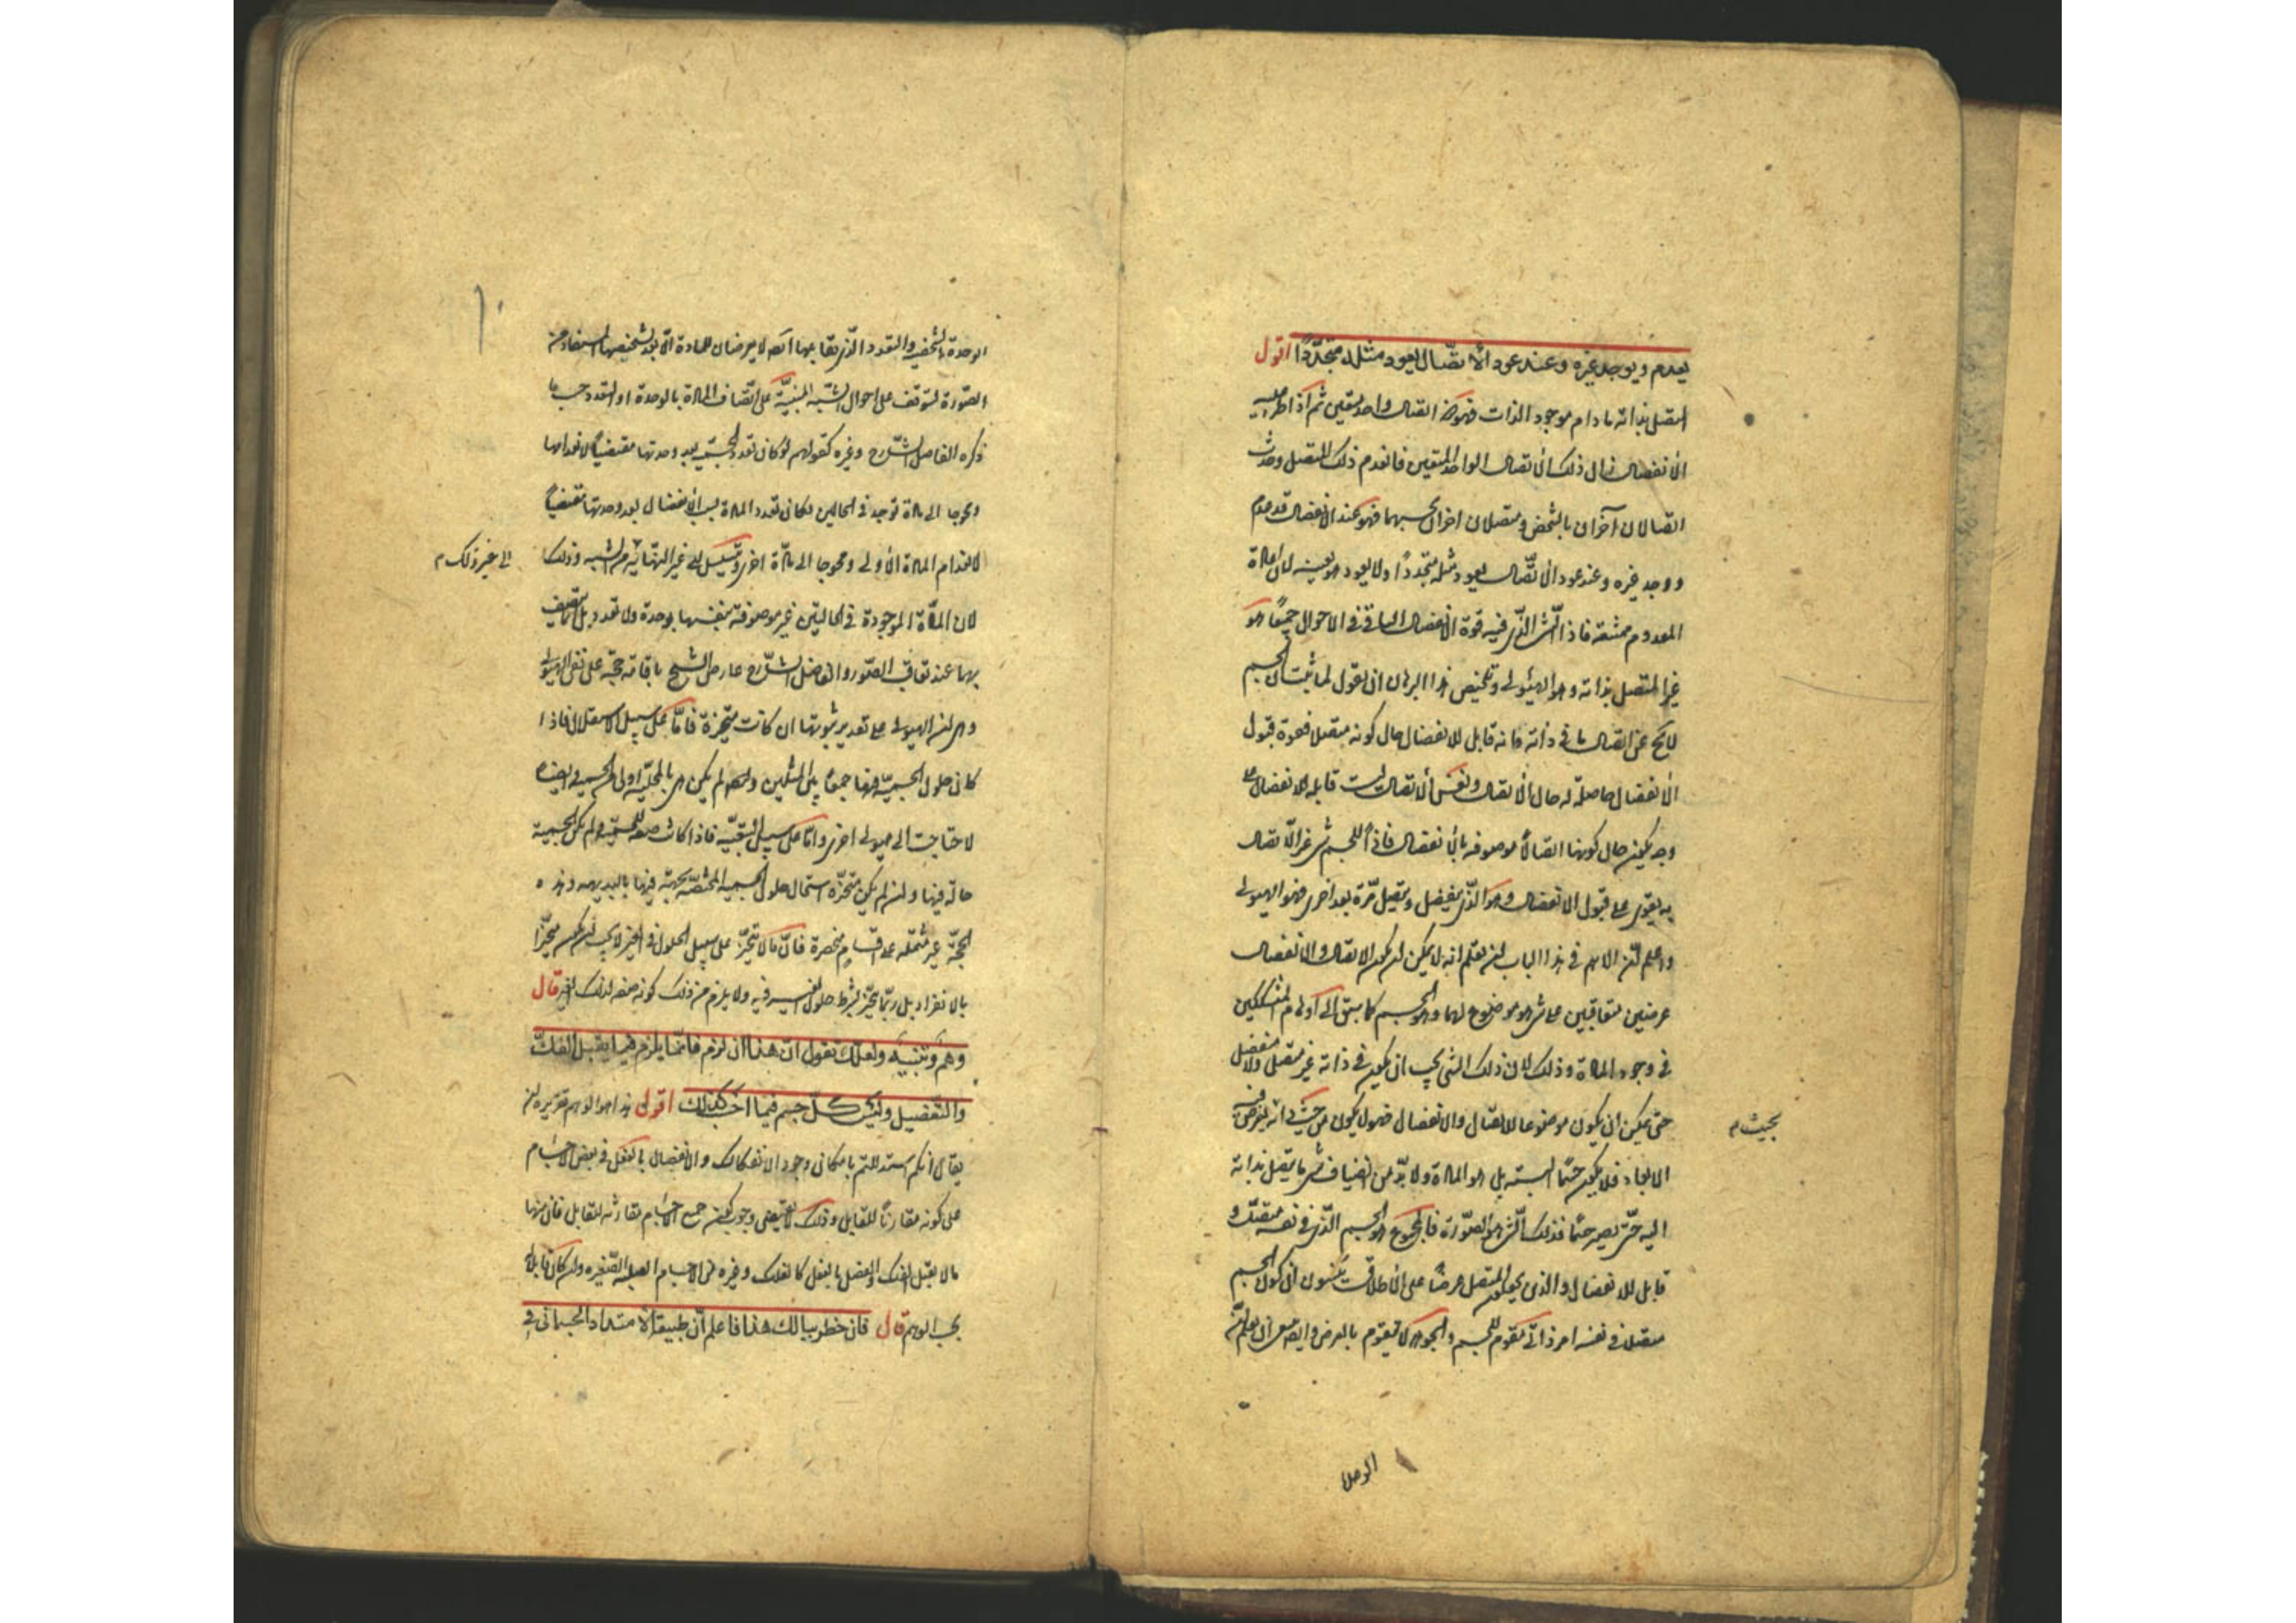 يعدم ويوجد غيره وعند عود الاتصال يعود مثله متجدّدًا اقول
المتصل بذاته ما دام موجود الذات فهو ذو اتصال واحد متعين ثم اذا طرء عليه
الانفصال زال ذلك الاتصال الواحد المتعين فانعدم ذلك المتصل وحدث
اتصالان آخران بالشخص ومتصلان اخران بحسبهما فهو عند الانفصال قد عدم
ووجد غيره وعند عود الاتصال يعود مثله متجددًا ولا يعود هو بعينه لان اعادة
المعدوم ممتنعة فاذا الشئ الذى فيه قوة الانفصال الباقى فى الاحوال جميعًا هو
غير المتصل بذاته وهو الهيولى وتلخيص هذا البرهان ان نقول لما ثبت ان الجسم
لا يخ عن اتصال ما فى ذاته وانه قابل للانفصال حال كونه متصلا فقوة قبول
الانفصال حاصلة له حال الاتصال ونفس الاتصال ليست قابلة للانفصال على
وجه يكون حال كونها اتصالًا موصوفة بالانفصال فاذًا للجسم شئ غير الاتصال
به يقوى على قبول الانفصال وهو الذى ينفصل ويتصل مرّة بعد اخرى فهو الهيولى
واعلم ان الاهم فى هذا الباب ان تعلم انه لا يمكن ان يكون الاتصال والانفصال
عرضين متعاقبين على شئ هو موضوع لهما وهو الجسم كما سبق الى اوهام المتشككين
فى وجود المادة وذلك لان ذلك الشئ يجب ان يكون فى ذاته غير متصل ولا منفصل
حتى يمكن ان يكون موضوعا للاتصال والانفصال فهو لا يكون من حيث ذاته يفرض فيه
بحيث م
الابعاد فلا يكون جسمًا البتة بل هو المادة ولا بدّ من انضياف شئ ما متصل بذاته
اليه حتى يصير جسمًا فذلك الشئ هو الصورة فالمجموع هو الجسم الذى فى نفسه متصل و
قابل للانفصال والذى يجعلون المتصل عرضًا على الاطلاق ينسون ان كون الجسم
متصلا فى نفسه امر ذاتى مقوم للجسم والجوهر لا يتقوم بالعرض وايضا يجب ان يعلم ان
الوحدة
الوحدة الشخصية والتعدد الذى يقابلها ايضا لا يعرضان للمادة الا بعد تشخصها المستفاد من
الصورة لتوقف على احوال الشبه المبنية على اتصاف المادة بالوحدة او التعدد حسب ما
ذكره الفاضل الشارح وغيره كقولهم لو كان تعدد الجسمية بعد وحدتها مقتضيًا لانعدامها
ومحوجا الى مادة توجد فى الحالين لكان تعدد المادة بسبب الانفصال بعد وحدتها مقتضيًا
لانعدام المادة الاولى ومحوجا الى مادة اخرى ويتسلسل الى غير النهاية من الشبه وذلك
الى غير ذلك م
لان المادة الموجودة فى الحالتين غير موصوفة بنفسها بوحدة ولا تعدد بل انما يتصف
بهما عند تعاقب الصور والفاضل الشارح عارض الشيخ باقامة حجة على نفى الهيولى
وهى ان الهيولى على تقدير ثبوتها ان كانت متحيزة فامّا على سبيل الاستقلال فاذا
كان حلول الجسمية فيها جمعًا بين المثلين وايضا لم يكن هى بالمحلية اولى من الجسمية وايضا
لاحتاجت الى هيولى اخرى واما على سبيل التبعية فاذا كانت صفة للجسمية ولم يكن الجسمية
حالّة فيها وان لم يكن متحيزة استحال حلول الجسمية المختصة بجهة فيها بالبديهة وهذه
الحجة غير مشتملة على اقسام منحصرة فان ما لا يتحيز على سبيل الحلول فى الغير لا يجب ان يكون متحيزا
بالانفراد بل ربما يتحيز بشرط حلول الغير فيه ولا يلزم من ذلك كونه صفة لذلك الغير قال
وهم وتنبيه ولعلك تقول ان هذا ان لزم فانما يلزم فيما يقبل الفكّ
والتفصيل وليس كل جسم فيما احسب كذلك اقول هذا هو الوهم تقريره ان
يقال انكم استدللتم بامكان وجود الانفكاك والانفصال بالفعل فى بعض الاجسام
على كونه مقارنًا للقابل وذلك لا يقتضى وجوب كون جميع الاجسام مقارنة للقابل فان منها
ما لا يقبل الفك والفصل بالفعل كالفلك وغيره من الاجسام الصلبة الصغيرة وان كان قابلة
بحسب الوهم قال فان خطر ببالك هذا فاعلم انّ طبيعة الامتداد الجسمانى فى